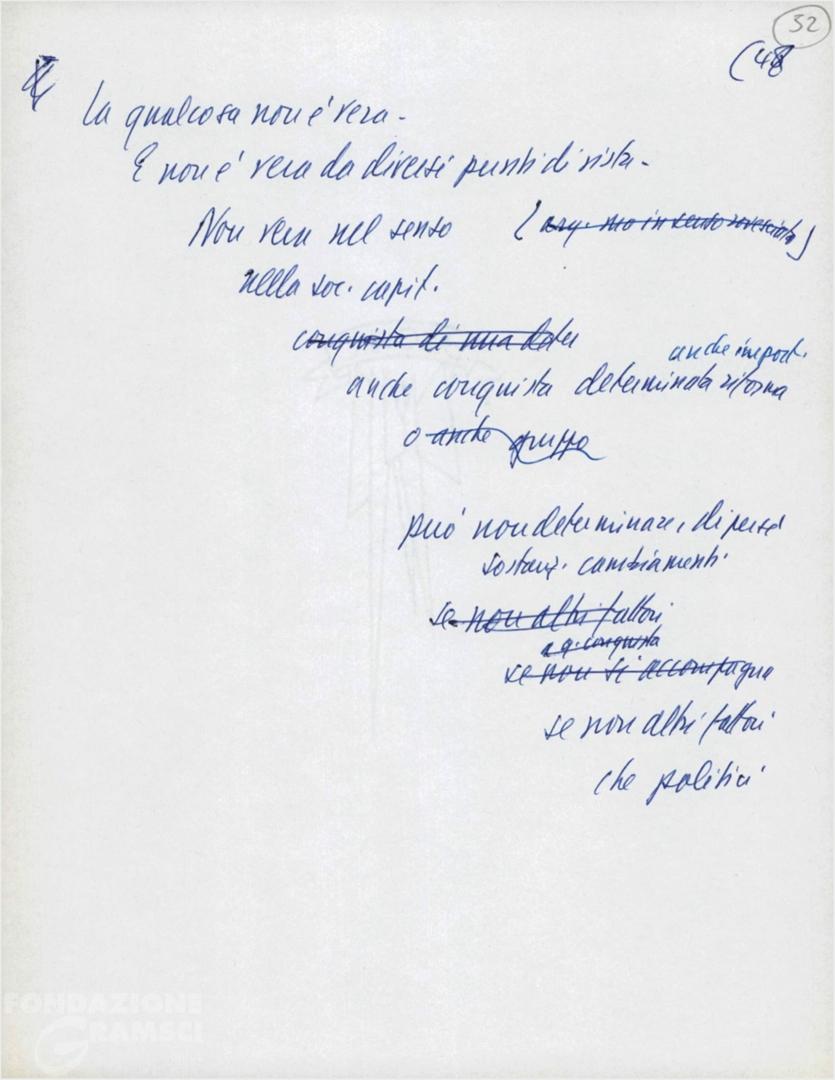 32
(48
La qualcosa non è vera -
E non è vera da diversi punti di vista -
Non vera nel senso
nella soc. capit.
conquista di una deter
anche import.
anche conquista determinata riforma
o anche gruppo
può non determinare, di per sé
sostanz. cambiamenti
se non altri fattori
a q. conquista
se non si accompagna
se non altri fattori
che politici
FONDAZIONE
GRAMSCI